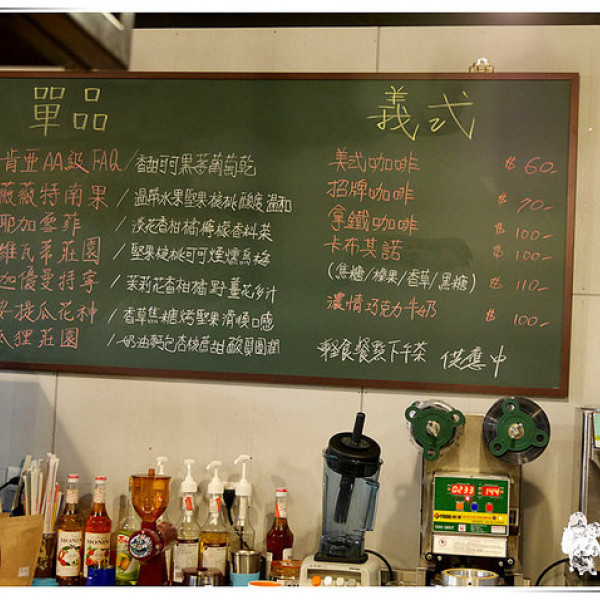 單品
肯亞AA級 FAQ/香甜可可黑莓葡萄乾
薇薇特南果/溫帶水果堅果核桃酸度溫和
耶加雪菲/淺花香柑橘檸檬香料菜
維瓦弟莊園/堅果核桃可可煙燻烏梅
加優曼特寧/茉莉花香柑橘野薑花多汁
提瓜花神/香草焦糖烤堅果滑順口感
瓜狸莊園/奶油麵包杏桃蔗甜酸質圓潤
義式
美式咖啡 $60-
招牌咖啡 $90-
拿鐵咖啡 $100-
卡布其諾 $100-
(焦糖/榛果/香草/黑糖) $110-
濃情巧克力牛奶 $100-
輕食餐點下午茶 供應中
MONIN
MONIN
0233 144